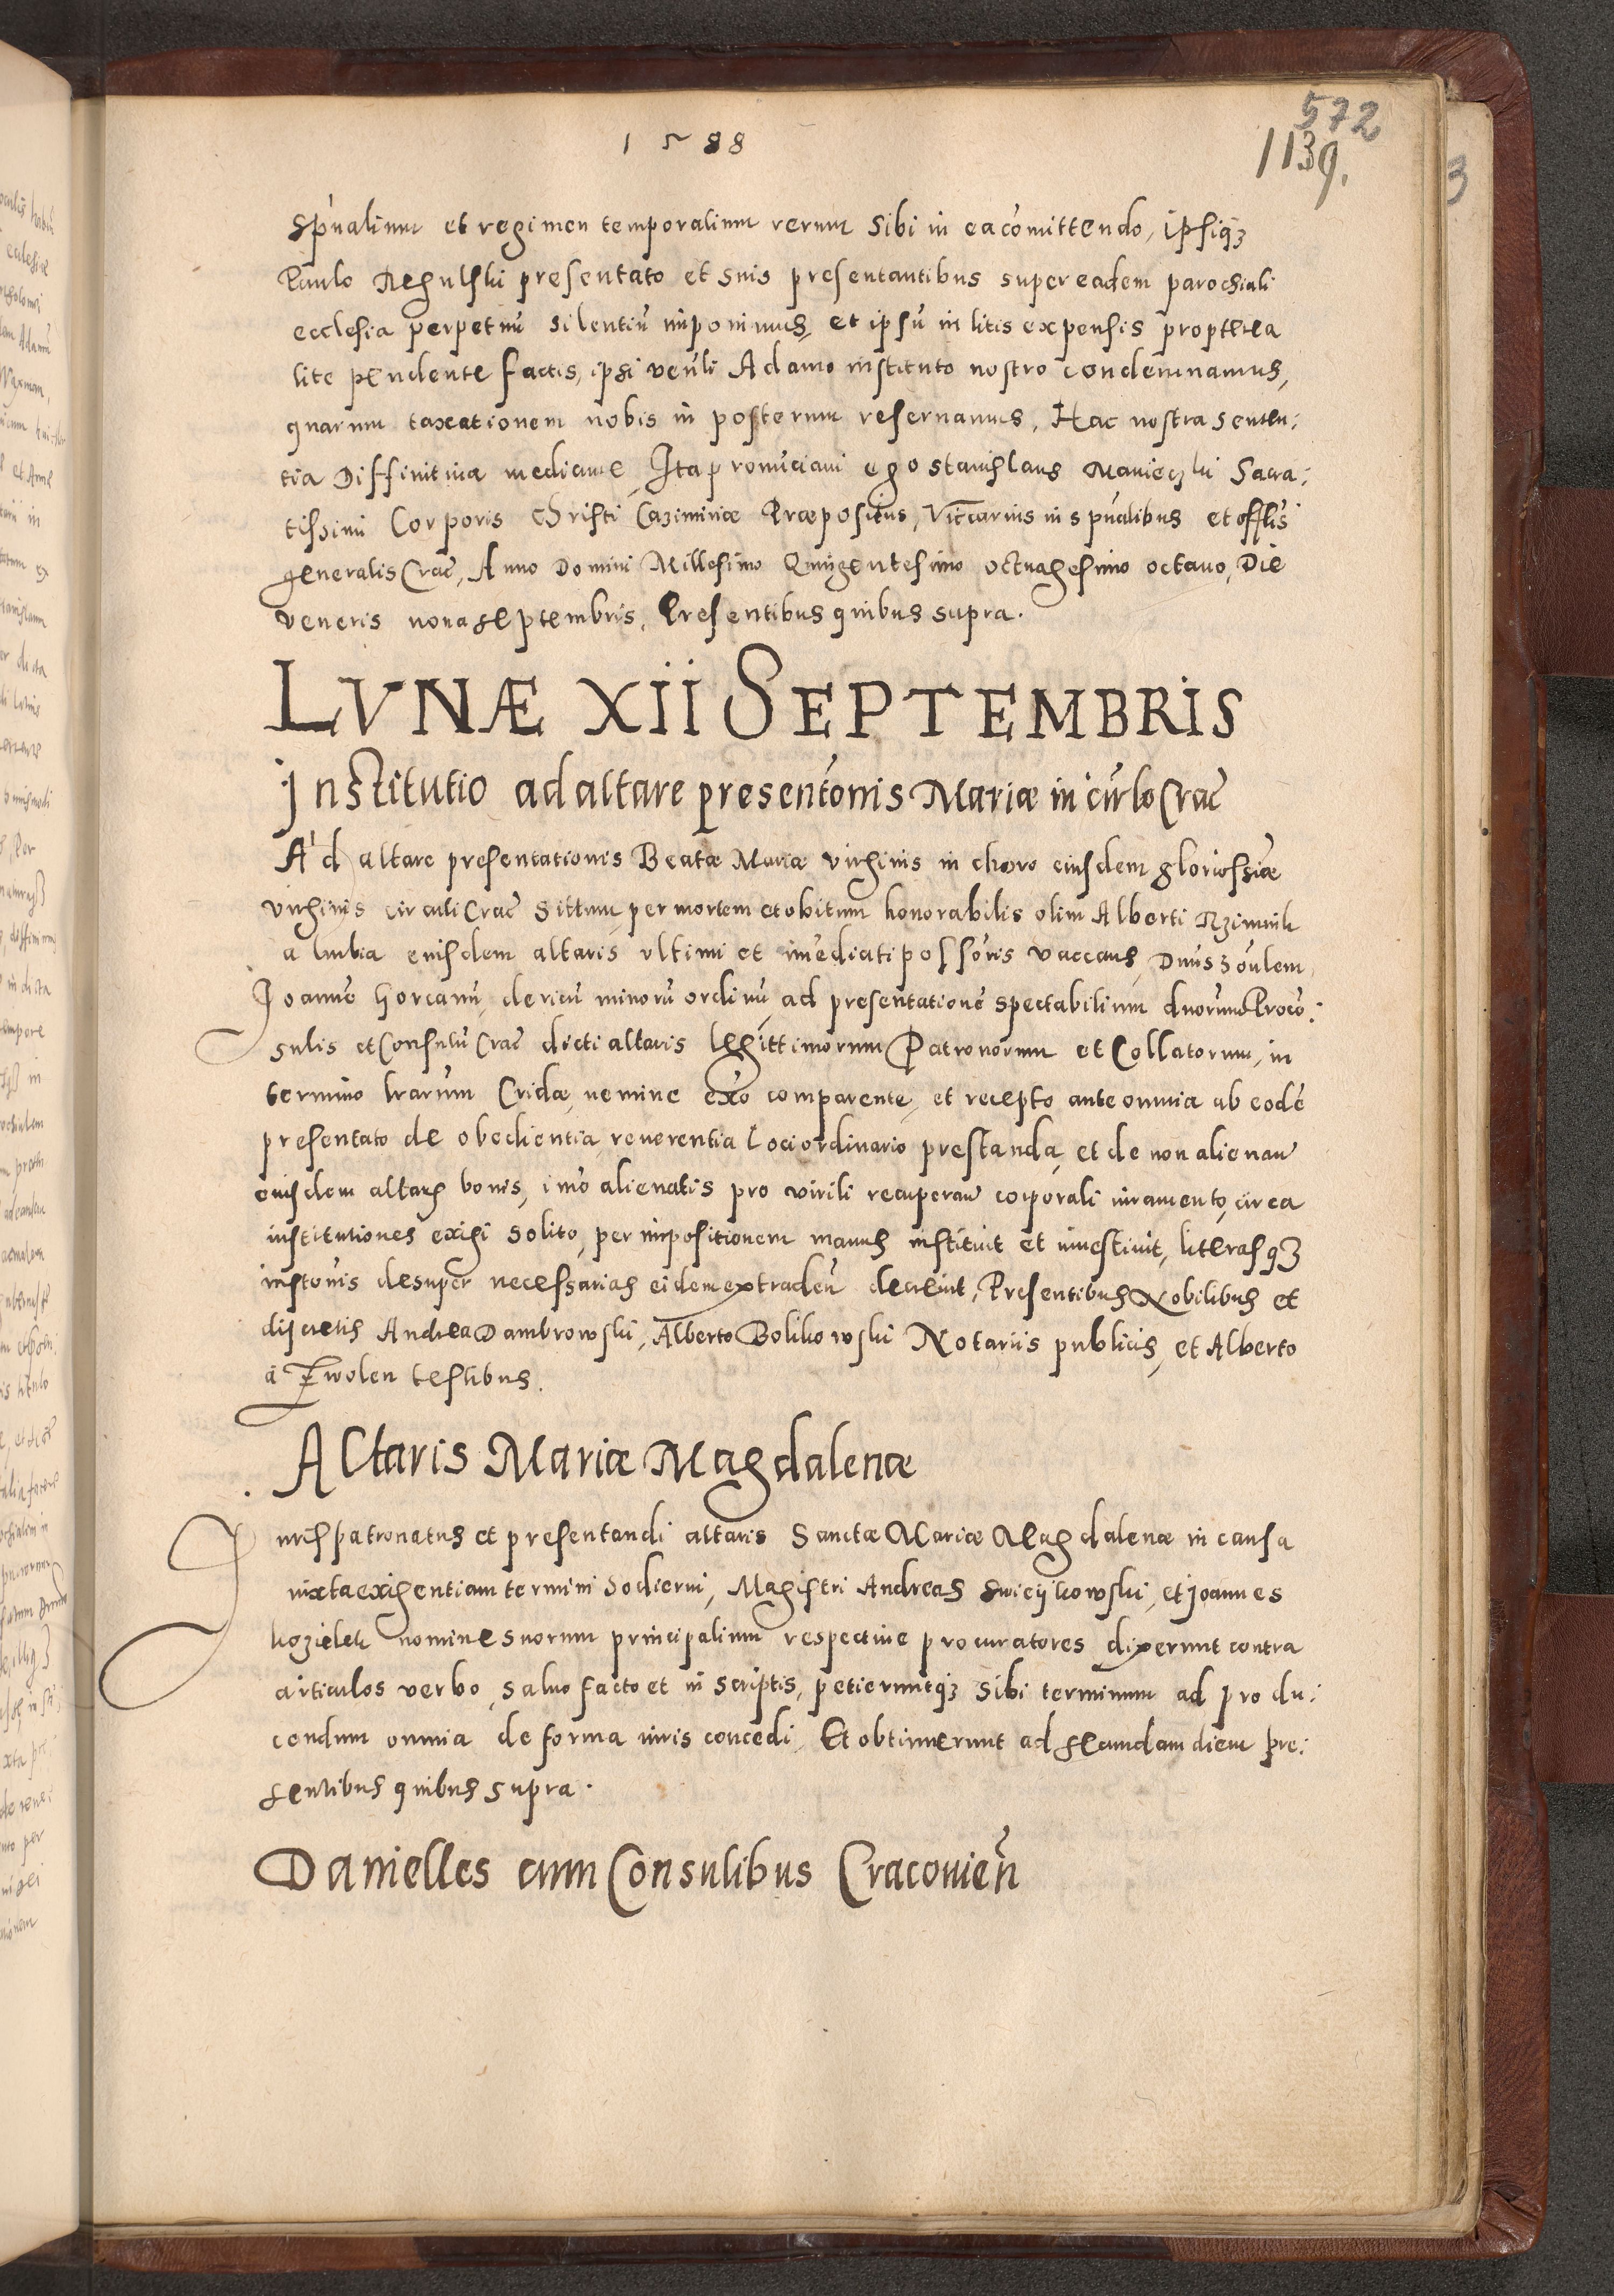 1588
572
1139.
spũalium et regimen temporalium rerum sibi in ea cõmittendo, ipsiqȝ
Paulo Regulski presentato et suis presentantibus super eadem parochiali
ecclesia perpetuũ silentiũ imponimus, et ipsũ in litis expensis propterea
lite pendente factis, ipsi veñli Adamo instituto nostro condemnamus,
quarum taxationem nobis in posterum reseruamus. Hac nostra senten:
tia Diffinitiua mediante, Ita pronũciaui ego Stanislaus Manieczki Sacra:
tissimi Corporis Christi Cazimiriæ Præpositus, Viccarius in spũalibus et offlis
generalis Crac̃, Anno Domini Millesimo Quingentesimo octuagesimo octauo, Die
veneris nona septembris, Presentibus quibus supra.
LVNÆ XII SEPTEMBRIS
Institutio ad altare presentõnis Mariæ in cirlo Crac̃
Ad altare presentationis Beatæ Mariæ virginis in choro eiusdem gloriossiæ
virginis circuli Crac̃ Sittum, per mortem et obitum honorabilis olim Alberti
a eiusdem altaris vltimi et im̃ediati possõris vaccans, Dñus
Joannẽ Horcanũ, clericũ minorũ ordinũ, ad presentationẽ spectabilium dnorum Procõ:
sulis et Consulũ Crac̃ dicti altaris legittimorum Patronorum et Collatorum, in
termino lrarum Cridæ, nemine exõ comparente, et recepto ante omnia ab eodẽ
presentato de obedientia, reuerentia loci ordinario prestanda, et de non alienañ
eiusdem altaris bonis, imõ alienatis pro virili recuperañ corporali iuramento, circa
institutiones exigi solito, per impositionem manus instituit et inuestiuit, literasqȝ
instõnis desuper necessarias eidem extradeñ decreuit, Presentibus Nobilibus et
discretis Andrea Dambrowski, Alberto Bolikowski Notariis publicis, et Alberto
à Zwolen testibus.
Altaris Mariæ Magdalenæ
Juris patronatus et presentandi altaris Sanctæ Mariæ Magdalenæ in causa
iuxta exigentiam termini hodierni, Magistri Andreas Swieijkowski, et Joannes
kozielek nomine suorum principalium respectiue procuratores dixerunt contra
articulos verbo, saluo facto et in scriptis, petieruntqȝ sibi terminum ad produ:
cendum omnia de forma iuris concedi, Et obtinuerunt ad secundam diem pre:
sentibus quibus supra.
Danielles cum Consulibus Cracouień